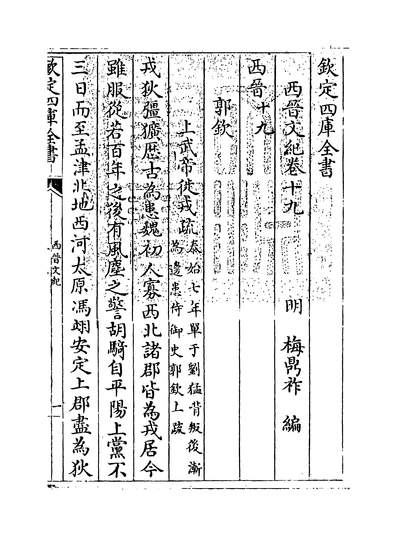 欽定四庫全書
西晉文紀卷十九
明 梅鼎祚 編
西晉十九
郭欽
上武帝徙戎疏
泰始七年單于劉猛背叛後漸
為邊患侍御史郭欽上疏
戎狄彊獷歷古為患魏初人寡西北諸郡皆為戎居今
雖服從若百年之後有風塵之警胡騎自平陽上黨不
三日而至孟津北地西河太原馮翊安定上郡盡為狄
欽定四庫全書
西晉文紀
一